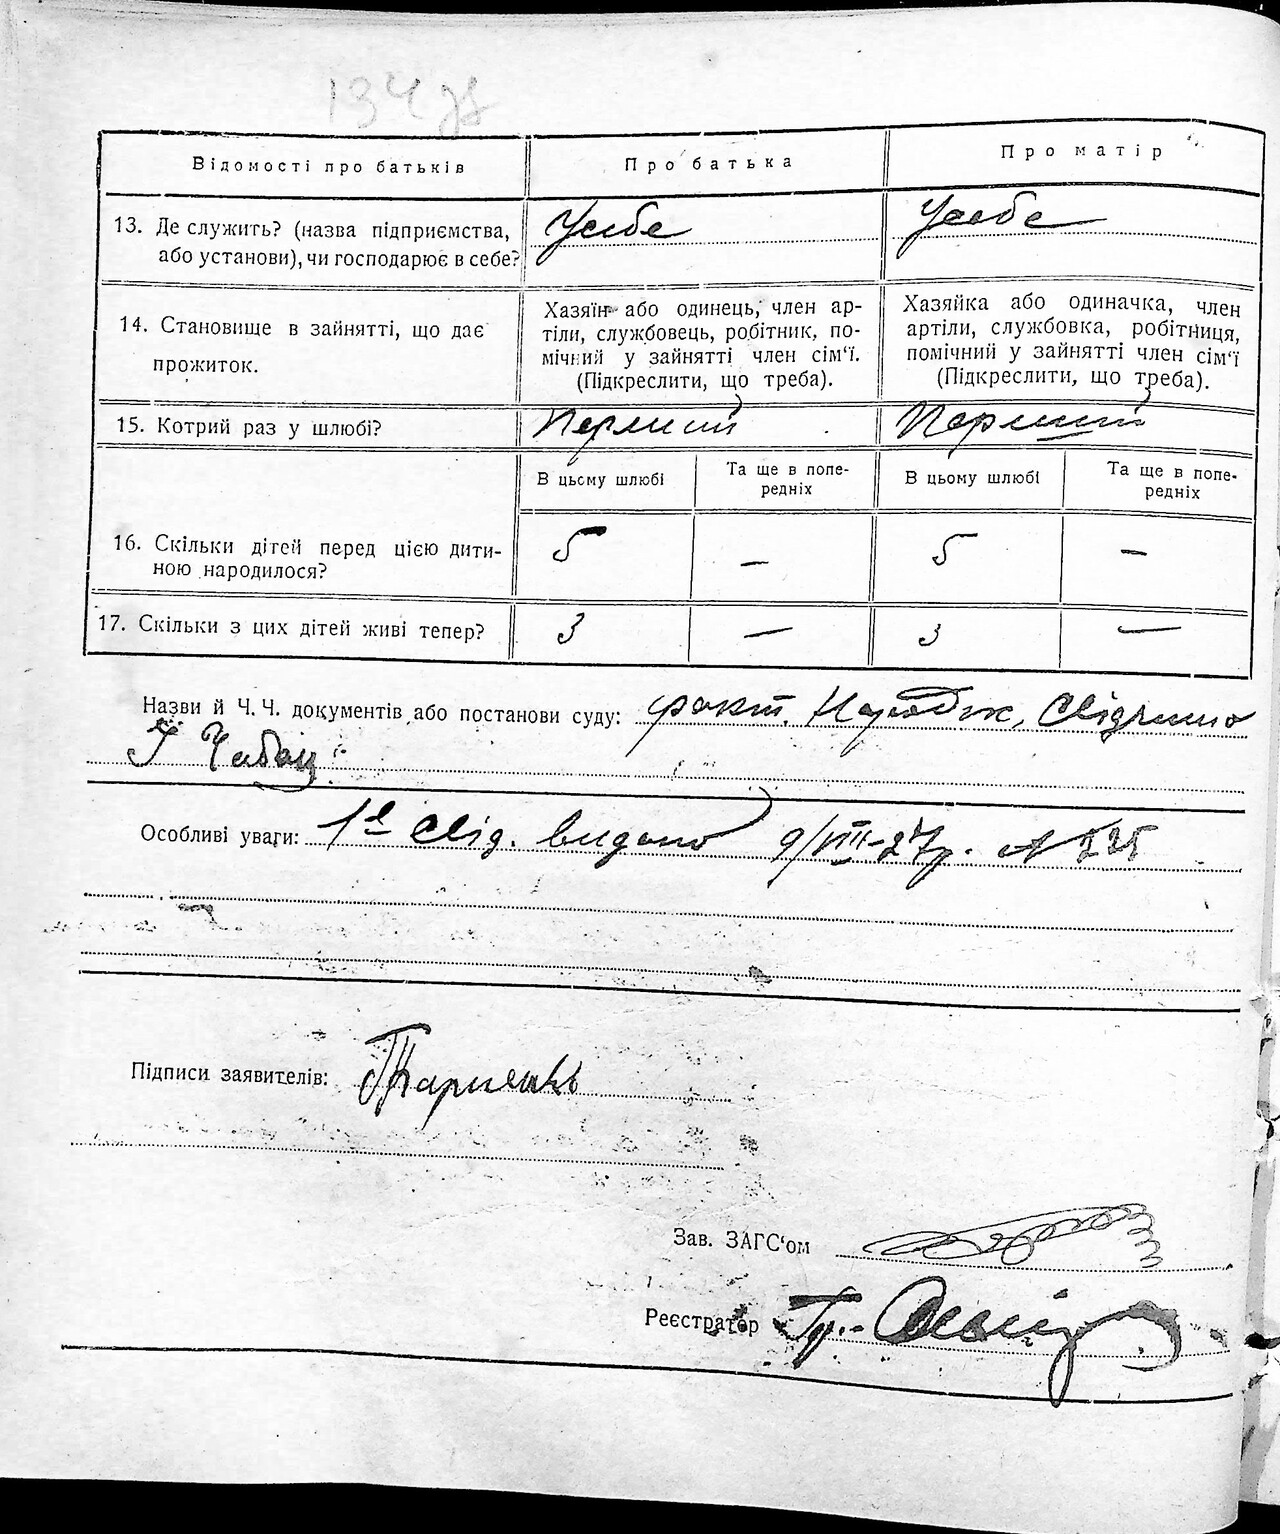 134
Відомості про батьків
Про батька
Про матір
13. Де служить? (назва підприємства,
або установи), чи господарює в себе?
Усебе
Усебе
14. Становище в зайнятті, що дає
прожиток.
Хазяїн або одинець, член ар-
тіли, службовець, робітник, по-
мічний у зайнятті член сім‘ї.
(Підкреслити, що треба).
Хазяйка або одиначка, член
артіли, службовка, робітниця,
помічний у зайнятті член сім‘ї
(Підкреслити, що треба).
15. Котрий раз у шлюбі?
Перший
Перший
В цьому шлюбі
Та ще в попе-
редніх
В цьому шлюбі
Та ще в попе-
редніх
16. Скільки дітей перед цією дити-
ною народилося?
5
—
5
—
17. Скільки з цих дітей живі тепер?
3
—
3
—
Назви й Ч. Ч. документів або постанови суду:
Особливі уваги: 1е свід. видано 9/VIII-27р.
Підписи заявителів:
Зав. ЗАГС‘ом
Реєстратор Гр.